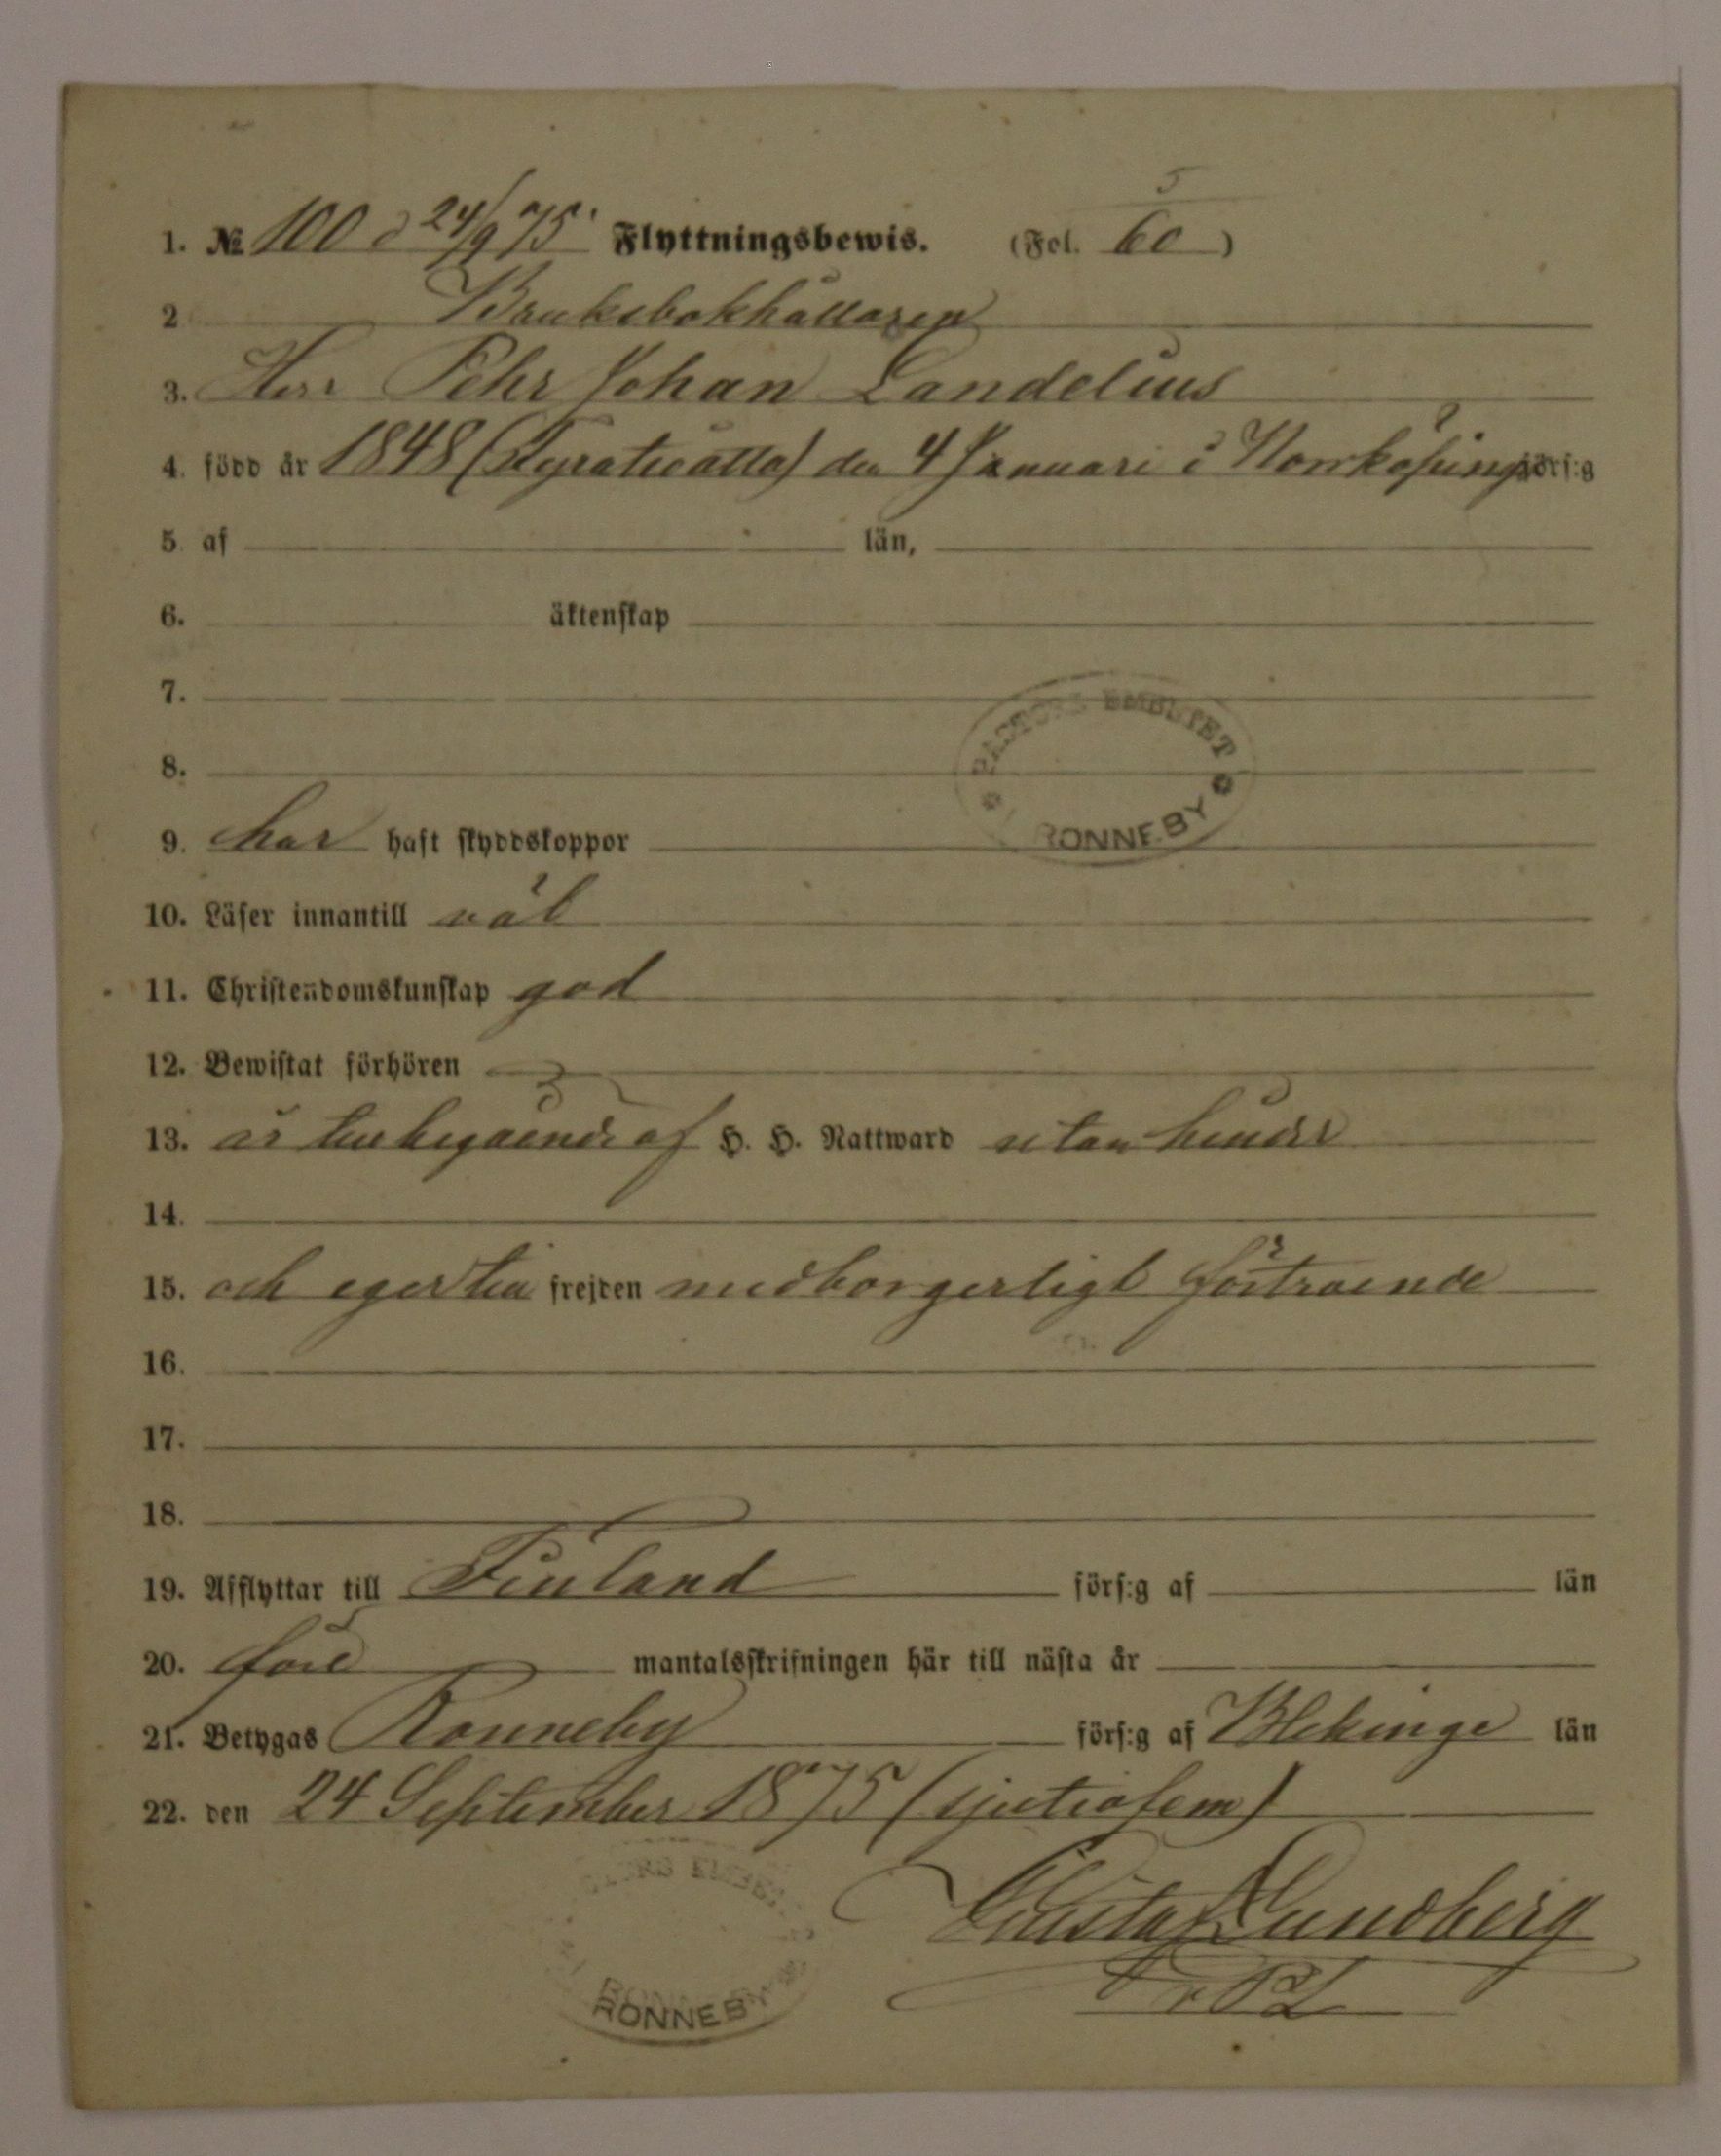 1. № 100 d 24/9 75. Flyttningsbewis. (Fol. 5/60)
2 Bruksbokhållaren
3. Herr Pehr Johan Landelius
4. född år 1848 (fyratioåtta) den 4 Januari i Norrköping förs:g
5. af län,
6. äktenskap
7.
8.
PASTORS EMBETET I RONNEBY
9. har haft skyddskoppor
10. Läser innantill väl
11. Christendomskunskap god
12. Bewistat förhören
13. är tillbegående af H. H. Nattward utan hinder
14.
15. och eger till frejden medborgerligt förtroende
16.
17.
18.
19. Afflyttar till Finland förs:g af län
20. före mantalsskrifningen här till nästa år
21. Betygas Ronneby förs:g af Blekinge län
22. den 24 September 1875 (sjutiofem)
Gustaf Lundberg
RONNEBY